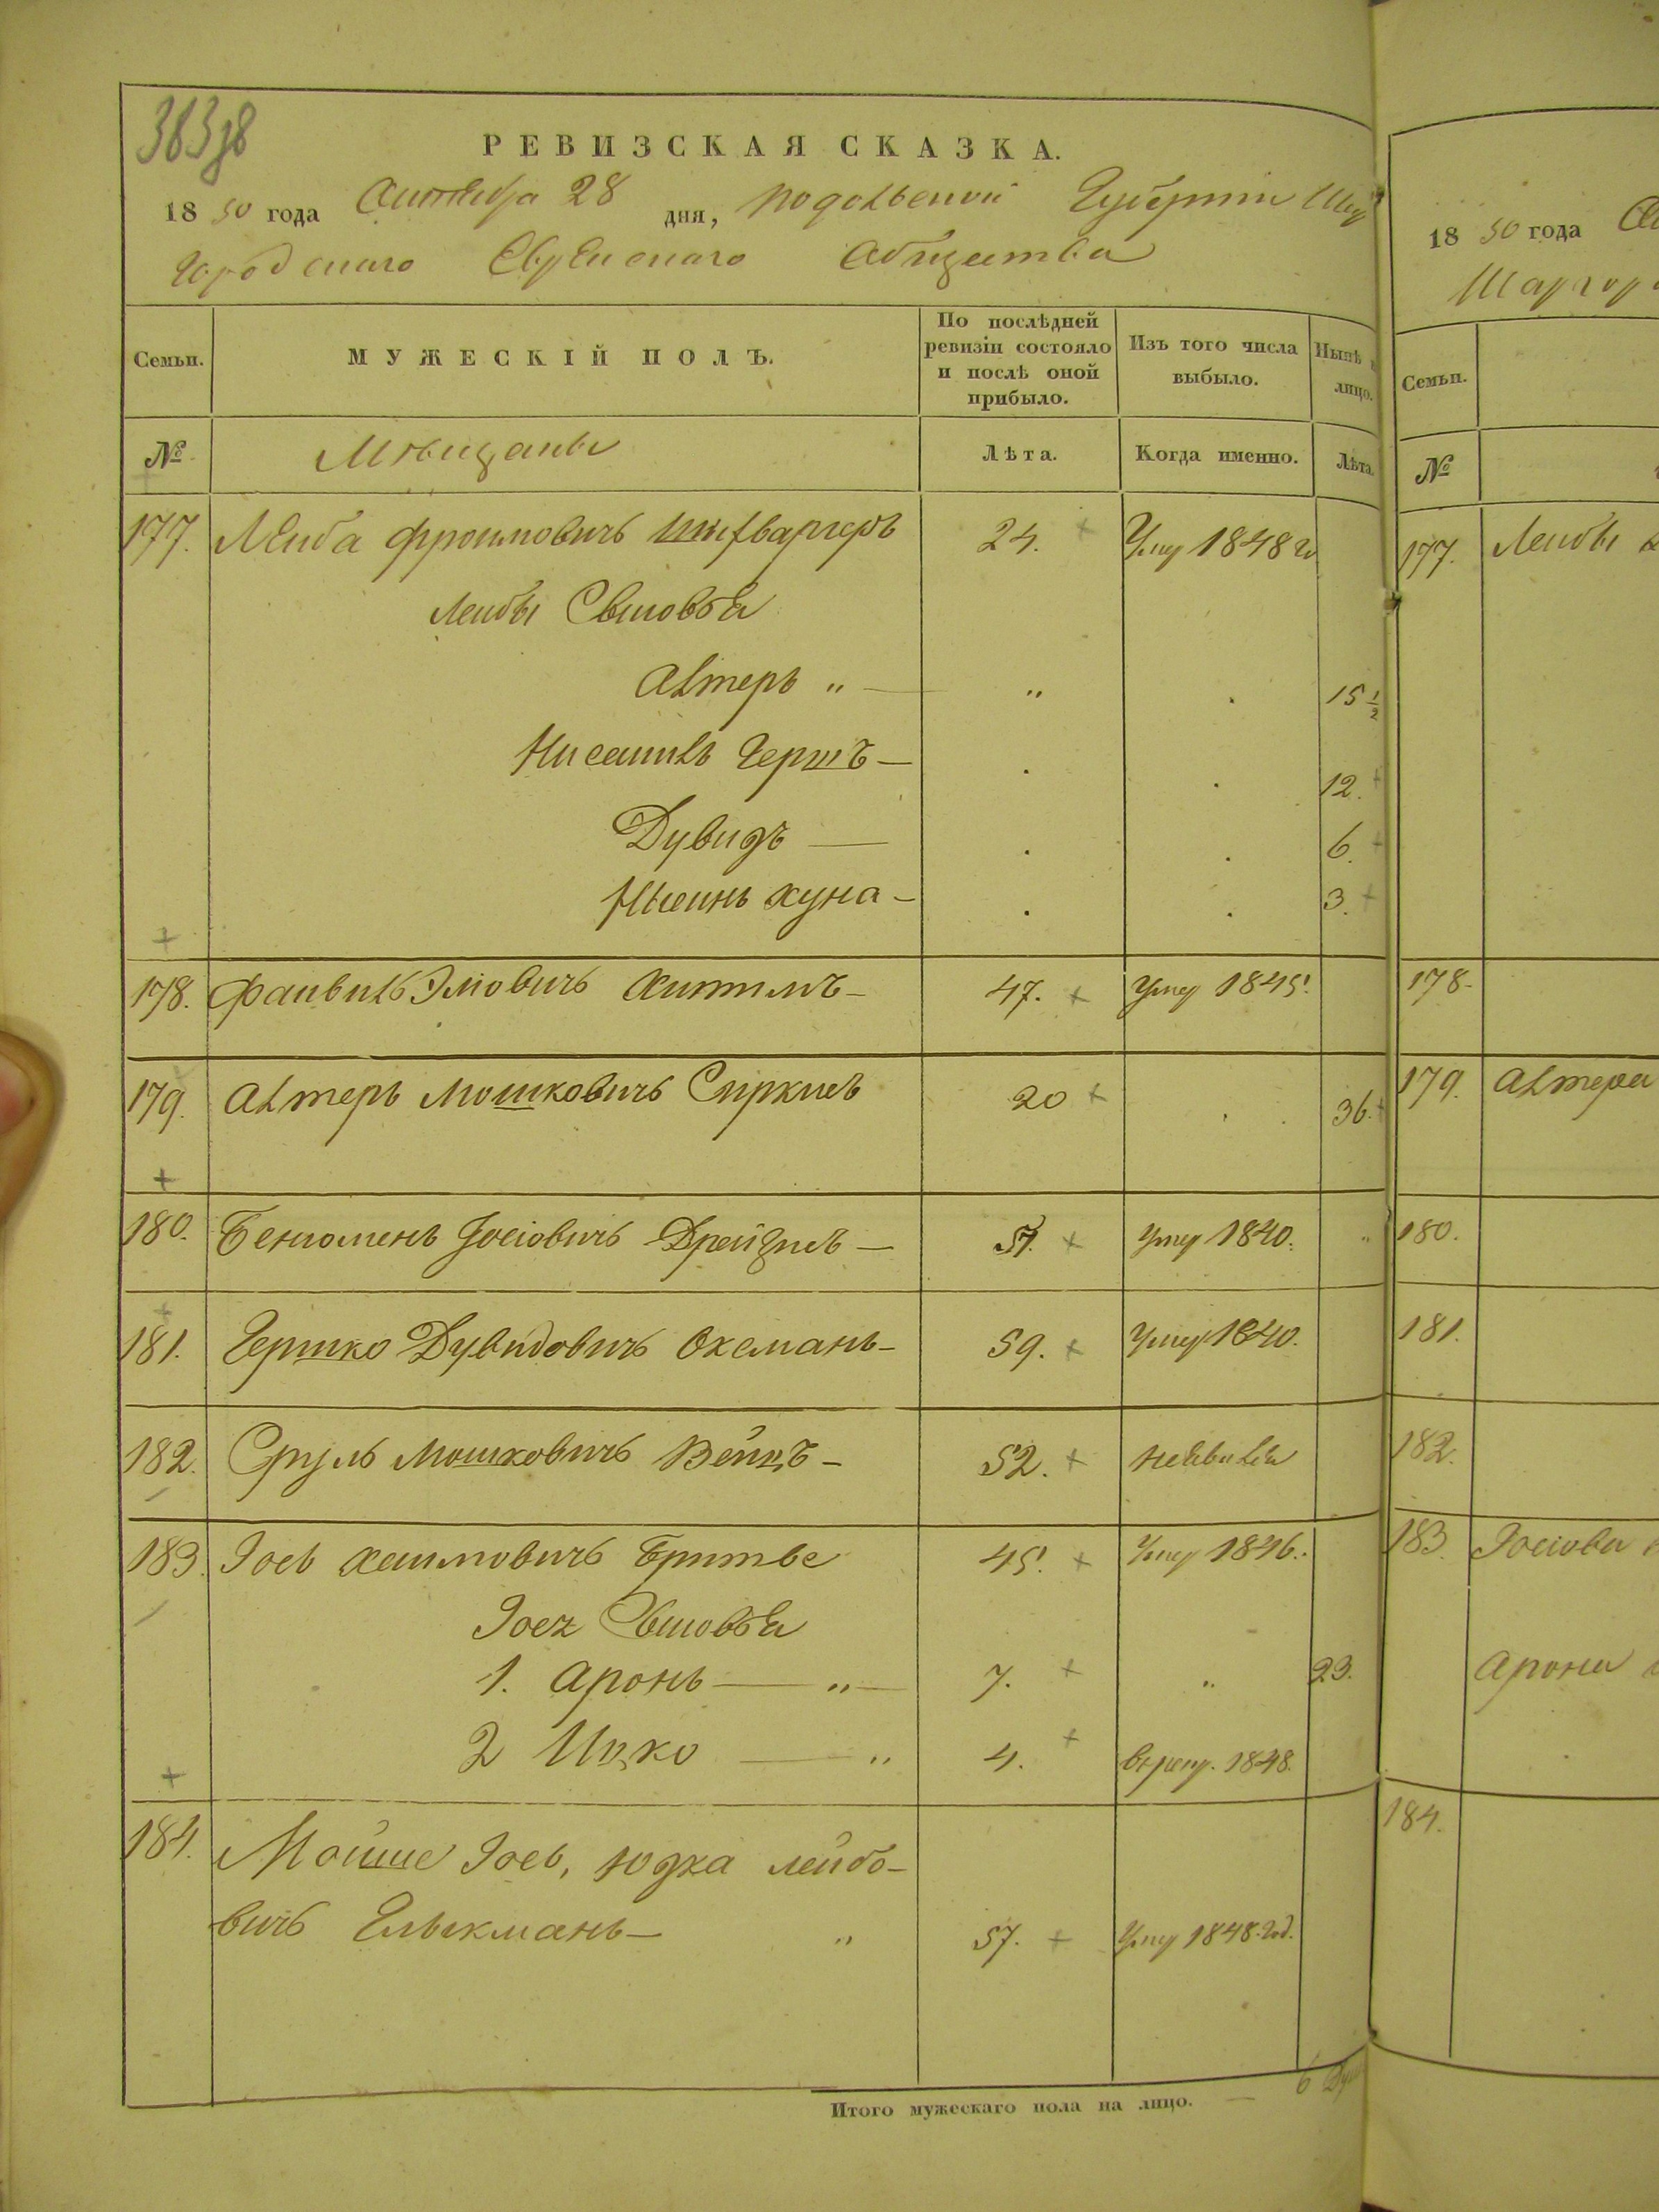 РЕВИЗСКАЯ СКАЗКА.
18 50 года Октября 28 дня, Подольской Губерніи Шар
городскаго Еврейскаго Общества
Семьи.
МУЖЕСКІЙ ПОЛЪ.
По послѣдней ревизіи состояло и послѣ оной прибыло.
Изъ того числа выбыло.
Нынѣ на лицо.
№
Мѣщане
Лѣта.
Когда именно.
Лѣта.
177. Лейба Фроимовичъ 24. Умер 1848 го
Лейбы Сыновья
Альтеръ " — " . 15 1/2
Нисенъ Гершъ — . . 12.
Дувидъ — . . 6.
Хуна — . . 3.
178. Файвиль Эліовичъ 47. Умер 1845.
179. Альтеръ Мошковичъ 20 . 36.
180. Беніоменъ Іосіовичъ 57. Умер 1840. "
181. Гершко Дувидовичъ Оксманъ — 59. Умер 1840.
182. Сруль Мошковичъ Вейцъ — 52. неявился
183. Іосъ Хаимовичъ 45. Умер 1846.
Іося Сыновья
1. Аронъ — " — 7. " 23.
2 Ицко — " 4. в рекр. 1848.
184. Мойше Іосъ, Юдка Лейбо-
вичъ — " 57. Умер 1848 год.
Итого мужескаго пола на лицо. — 6 Душ
18 50 года
Шаргоро
Семьи.
№
177. Лейбы
178.
179. Альтера
180.
181.
182.
183. Іосіова
Арона
184.